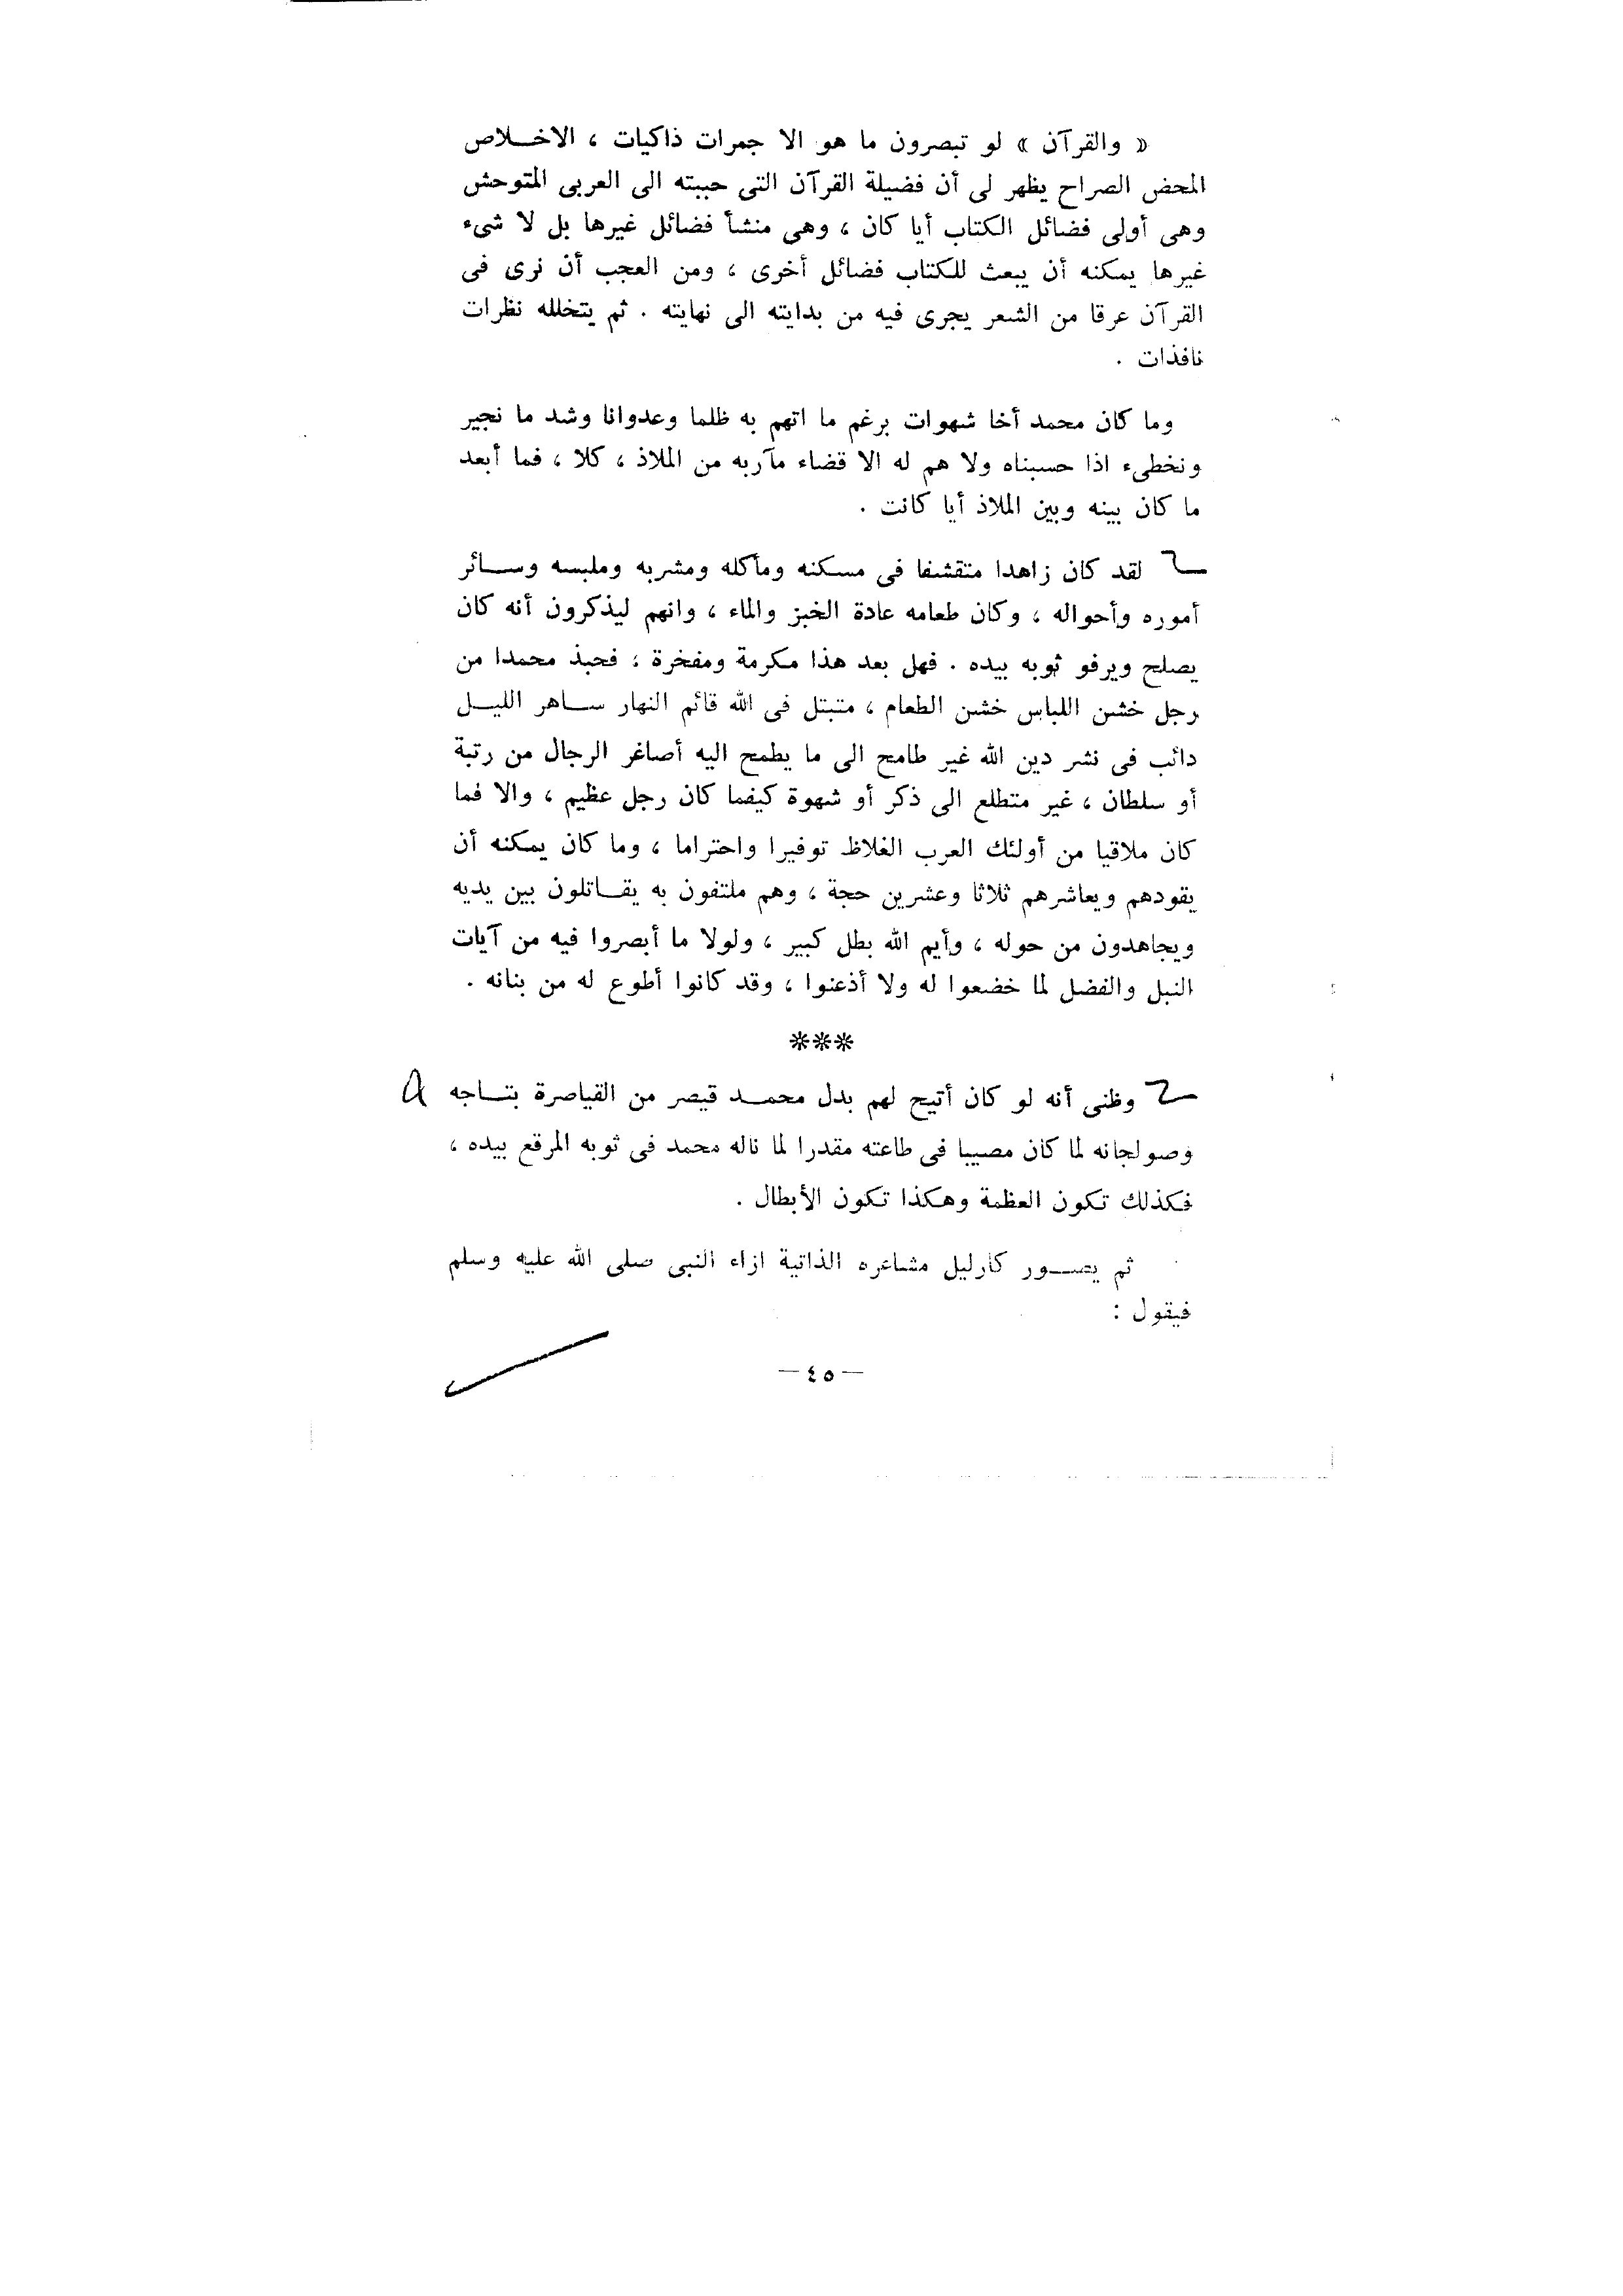 « والقرآن » لو تبصرون ما هو الا جمرات ذاكيات ، الاخـــلاص
المحض الصراح يظهر لى أن فضيلة القرآن التى حببته الى العربى المتوحش
وهى أولى فضائل الكتاب أيا كان ، وهى منشأ فضائل غيرها بل لا شىء
غيرها يمكنه أن يبعث للكتاب فضائل أخرى ، ومن العجب أن نرى فى
القرآن عرقا من الشعر يجرى فيه من بدايته الى نهايته . ثم يتخلله نظرات
نافذات .
وما كان محمد أخا شهوات برغم ما اتهم به ظلما وعدوانا وشد ما نجير
ونخطىء اذا حسبناه ولا هم له الا قضاء مآربه من الملاذ ، كلا ، فما أبعد
ما كان بينه وبين الملاذ أيا كانت .
لقد كان زاهدا متقشفا فى مسكنه ومأكله ومشربه وملبسه وســـائر
أموره وأحواله ، وكان طعامه عادة الخبز والماء ، وانهم ليذكرون أنه كان
يصلح ويرفو ثوبه بيده . فهل بعد هذا مكرمة ومفخرة ، فحبذ محمدا من
رجل خشن اللباس خشن الطعام ، متبتل فى الله قائم النهار ســاهر الليــل
دائب فى نشر دين الله غير طامح الى ما يطمح اليه أصاغر الرجال من رتبة
أو سلطان ، غير متطلع الى ذكر أو شهوة كيفما كان رجل عظيم ، والا فما
كان ملاقيا من أولئك العرب الغلاظ توفيرا واحتراما ، وما كان يمكنه أن
يقودهم ويعاشرهم ثلاثا وعشرين حجة ، وهم ملتفون به يقــاتلون بين يديه
ويجاهدون من حوله ، وأيم الله بطل كبير ، ولولا ما أبصروا فيه من آيات
النبل والفضل لما خضعوا له ولا أذعنوا ، وقد كانوا أطوع له من بنانه .
***
وظنى أنه لو كان أتيح لهم بدل محمــد قيصر من القياصرة بتــاجه
وصولجانه لما كان مصيبا فى طاعته مقدرا لما ناله محمد فى ثوبه المرقع بيده ،
فكذلك تكون العظمة وهكذا تكون الأبطال .
ثم يصــور كارليل مشاعره الذاتية ازاء النبى صلى الله عليه وسلم
فيقول :
— ٤٥ —